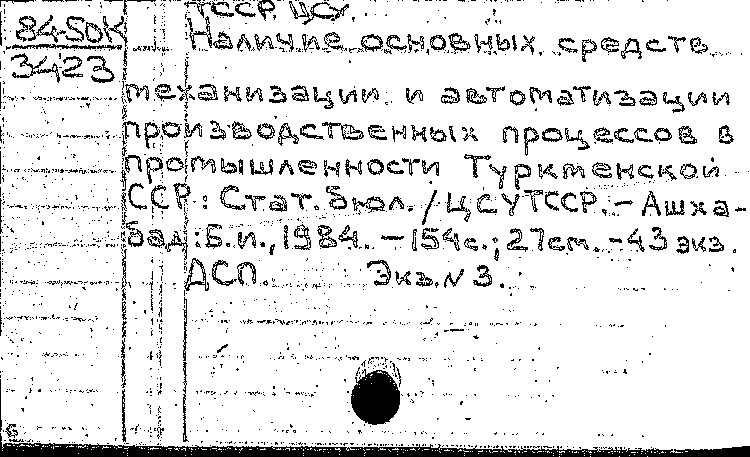 ТССР. ЦСУ.
84-50К
3423
Наличие основных средств
механизации и автоматизации
производственных процессов в
промышленности Туркменской
ССР: Стат. бюл. / ЦСУ ТССР. - Ашха-
бад: Б.и., 1984. - 154с.; 27см. - 43 экз.
ДСП. Экз. N 3.
6